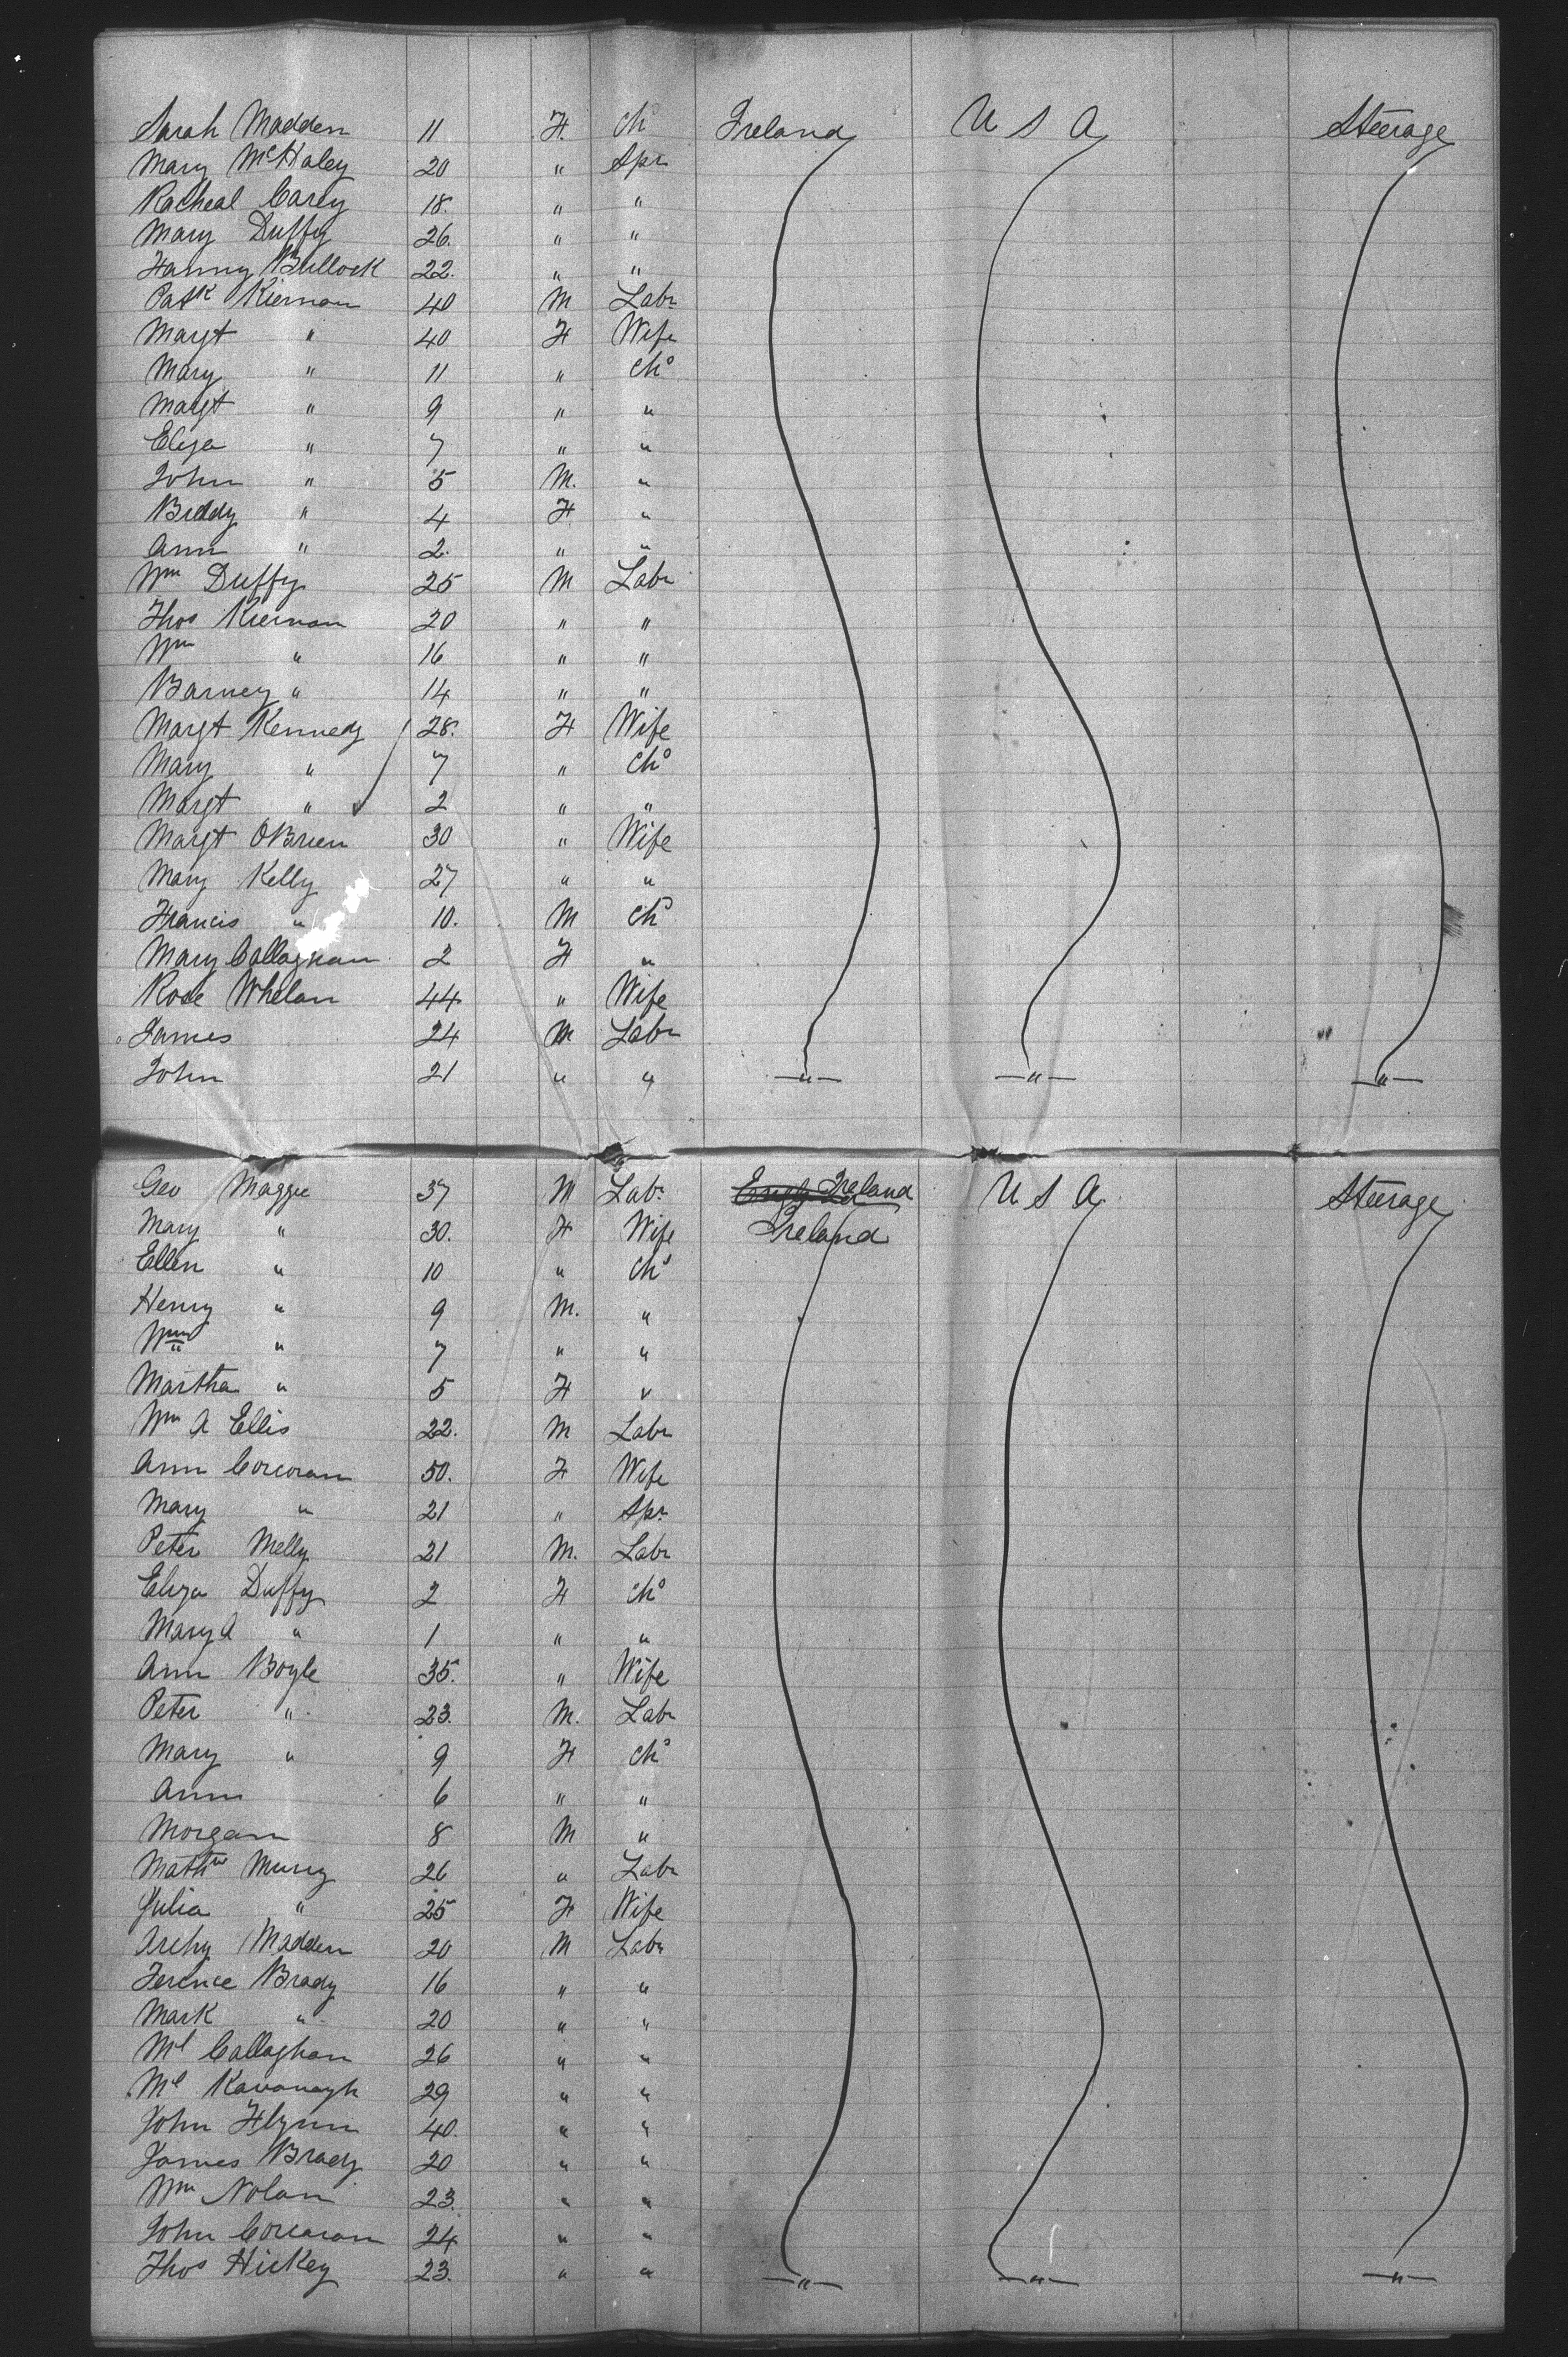 Sarah Madden 11 F. Ch Ireland U S A Steerage
Mary McHaley 20 " Spr
Racheal Carey 18. " "
Mary Duffy 26. " "
Fanny Bullock 22. " "
Patk Kiernan 40 M Labr
Margt " 40 F Wife
Mary " 11 " Cho
Margt " 9 " "
Eliza " 7 " "
John " 5 M. "
Biddy " 4 F "
Ann " 2. " "
Wm Duffy 25 M Labr
Thos Kiernan 20 " "
Wm " 16 " "
Barney " 14 " "
Margt Kennedy 28. F Wife
Mary " 7 " Cho
Margt " 2 " "
Margt OBrien 30 " Wife
Mary Kelly 27 " "
Francis " 10. M Cho
Mary Callaghan 2 F "
Rose Whelan 44 " Wife
James 24 M Labr
John 21 " " —"— —"— —"—
Geo Maggee 37 M Labr Ireland U S A Steerage
Mary " 30. F Wife Ireland
Ellen " 10 " Cho
Henry " 9 M. "
Wm " 7 " "
Martha " 5 F "
Wm A Ellis 22. M Labr
Ann Corcoran 50. F Wife
Mary " 21 " Spr
Peter Melly 21 M. Labr
Eliza Duffy 2 F Cho
Mary A " 1 " "
Ann Boyle 35. " Wife
Peter " 23. M. Labr
Mary " 9 F Cho
Ann 6 " "
Morgan 8 M "
Mathw Murry 26 " Labr
Julia " 25 F Wife
Archy Madden 20 M Labr
Terence Brady 16 " "
Mark " 20 " "
Ml Callaghan 26 " "
Ml Kavanagh 29 " "
John Flynn 40. " "
James Brady 20 " "
Wm Nolan 23. " "
John Corcoran 24 " "
Thos Hickey 23. " " —"— —"— —"—